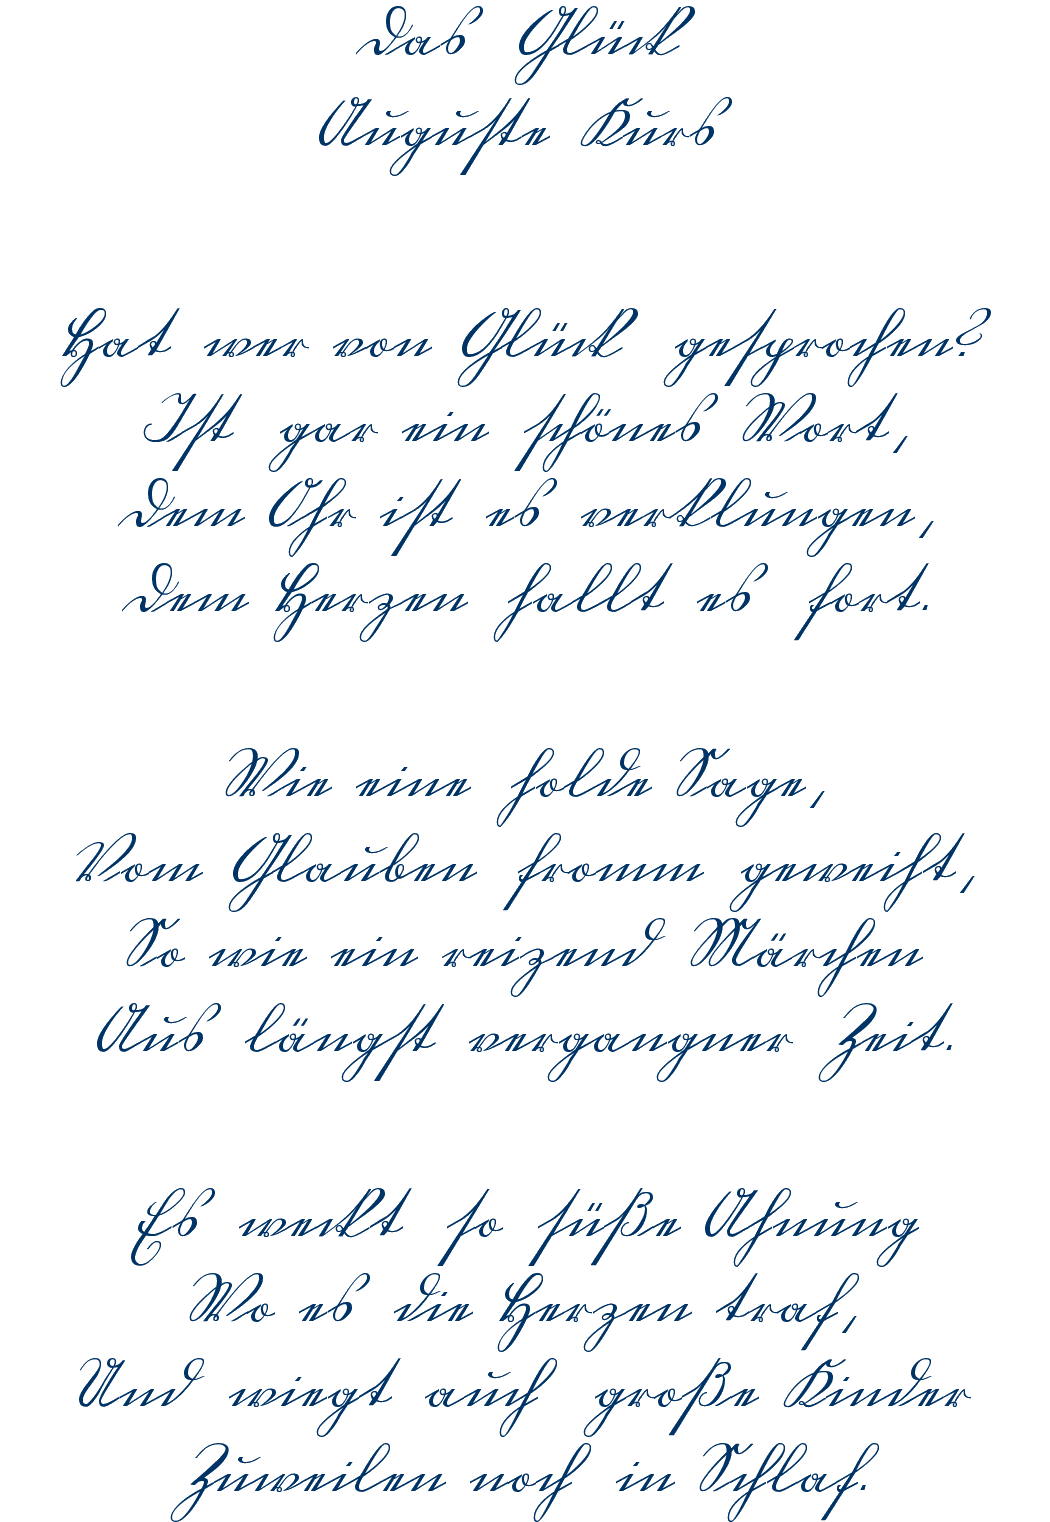 Das Glück
Auguste Kurs
Hat wer von Glück gesprochen?
Ist gar ein schönes Wort,
Dem Ohr ist es verklungen,
Dem Herzen hallt es fort.
Wie eine holde Sage,
Vom Glauben fromm geweiht,
So wie ein reizend Märchen
Aus längst vergangner Zeit.
Es weckt so süße Ahnung
Wo es die Herzen traf,
Und wiegt auch große Kinder
Zuweilen noch in Schlaf.